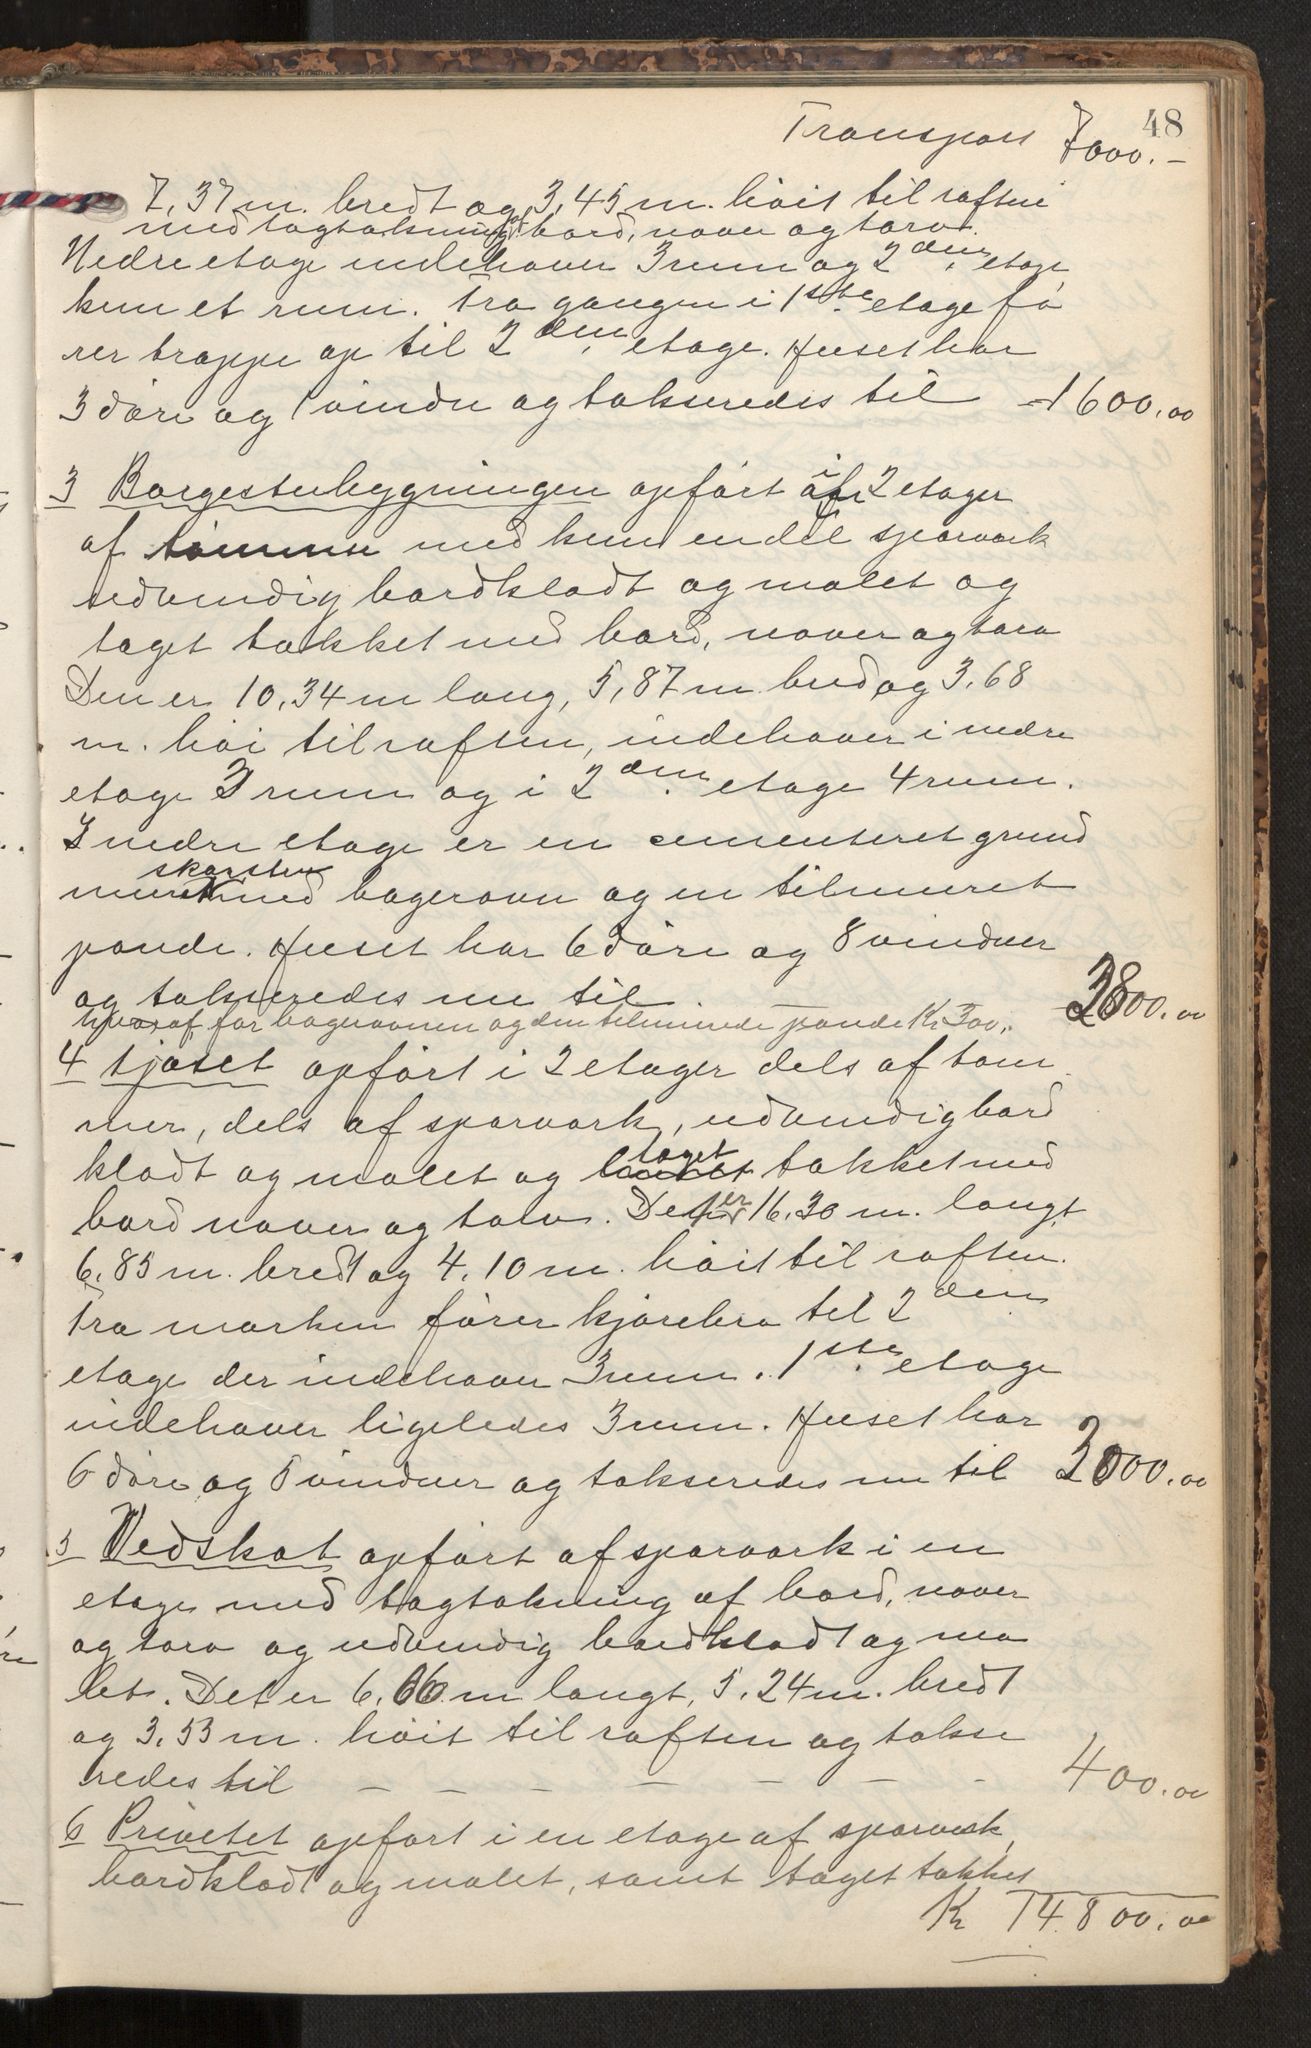 48
Transport 7000.-
7,37 m. bredt og 3,45 m. høit til raften
med tagtækning af bord, næver og tørv.
Nedre etage indehaver 3 rum og 2den etage
kun et rum. Fra gangen i 1ste etage fø
rer trappe op til 2den etage. Huset har
3 døre og 1 vindu og takseredes til - 1600,00
3 Borgestubygningen opført i 2 etager
af tømmer med kun endel sperværk
udvendig bordklædt og malet og
taget tækket med bord, næver og tørv
Den er 10,34 m lang, 5,87 m bred og 3,68
m. høi til raften, indehaver i nedre
etage 3 rum og i 2den etage 4 rum.
I nedre etage er en sementeret grund
muret skorsten med bagerovn og en tilmuret
pande. Huset har 6 døre og 8 vinduer
og takseredes nu til - 3800,00
hvoraf for bagerovnen og den tilmurede pande Kr 300,
4 Fjøset opført i 2 etager dels af tøm
mer, dels af sperværk, udvendig bord
klædt og malet og taget tækket med
bord næver og tørv. Det er 16,30 m. langt,
6,85 m. bredt og 4,10 m. høit til raften.
Fra marken fører kjørebro til 2den
etage der indehaver 3 rum. 1ste etage
indehaver ligeledes 3 rum. Huset har
6 døre og 5 vinduer og takseredes nu til 2000,00
5 Vedskot opført af sperværk i en
etage med tagtækning af bord, næver
og tørv og udvendig bordklædt og ma
let. Det er 6,66 m langt, 5,24 m. bredt
og 3,53 m. høit til raften og takse
redes til - - - - - - - 400,00
6 Privetet opført i en etage af sperværk,
bordklædt og malet, samt taget tækket
Kr 14800,00